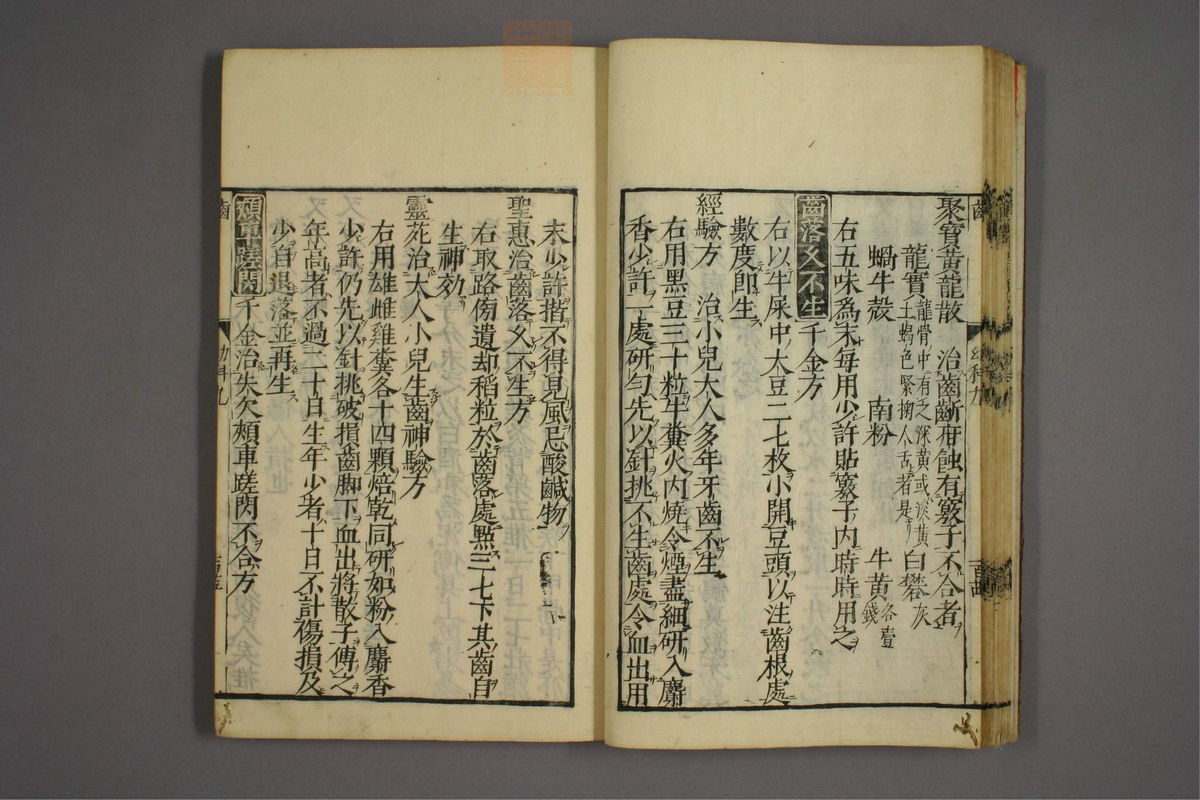 聚寶黃龍散 治齒齗疳蝕有竅子不合者
龍實 龍骨中有之深黃或淡黃土蝎色緊搊人舌者是 白礬灰
蝸牛殼 南粉 牛黃各壹錢
右五味爲末每用少許貼竅子內時時用之
齒落久不生 千金方
右以牛屎中大豆二七枚小開豆頭以注齒根處
數度即生
經驗方 治小兒大人多年牙齒不生
右用黑豆三十粒牛糞火內燒令煙盡細研入麝
香少許一處研勻先以針挑不生齒處令血出用
末少許揩不得見風忌酸鹹物
聖惠治齒落久不生方
右取路傍遺却稻粒於齒落處點三七下其齒自
生神効
靈苑治大人小兒生齒神驗方
右用雄雌雞糞各十四顆焙乾同研如粉入麝香
少許仍先以針挑破損齒脚下血出將散子傅之
年高者不過二十日生年少者十日不計傷損及
少自退落並再生
頰車蹉閃 千金治失欠頰車蹉閃不合方